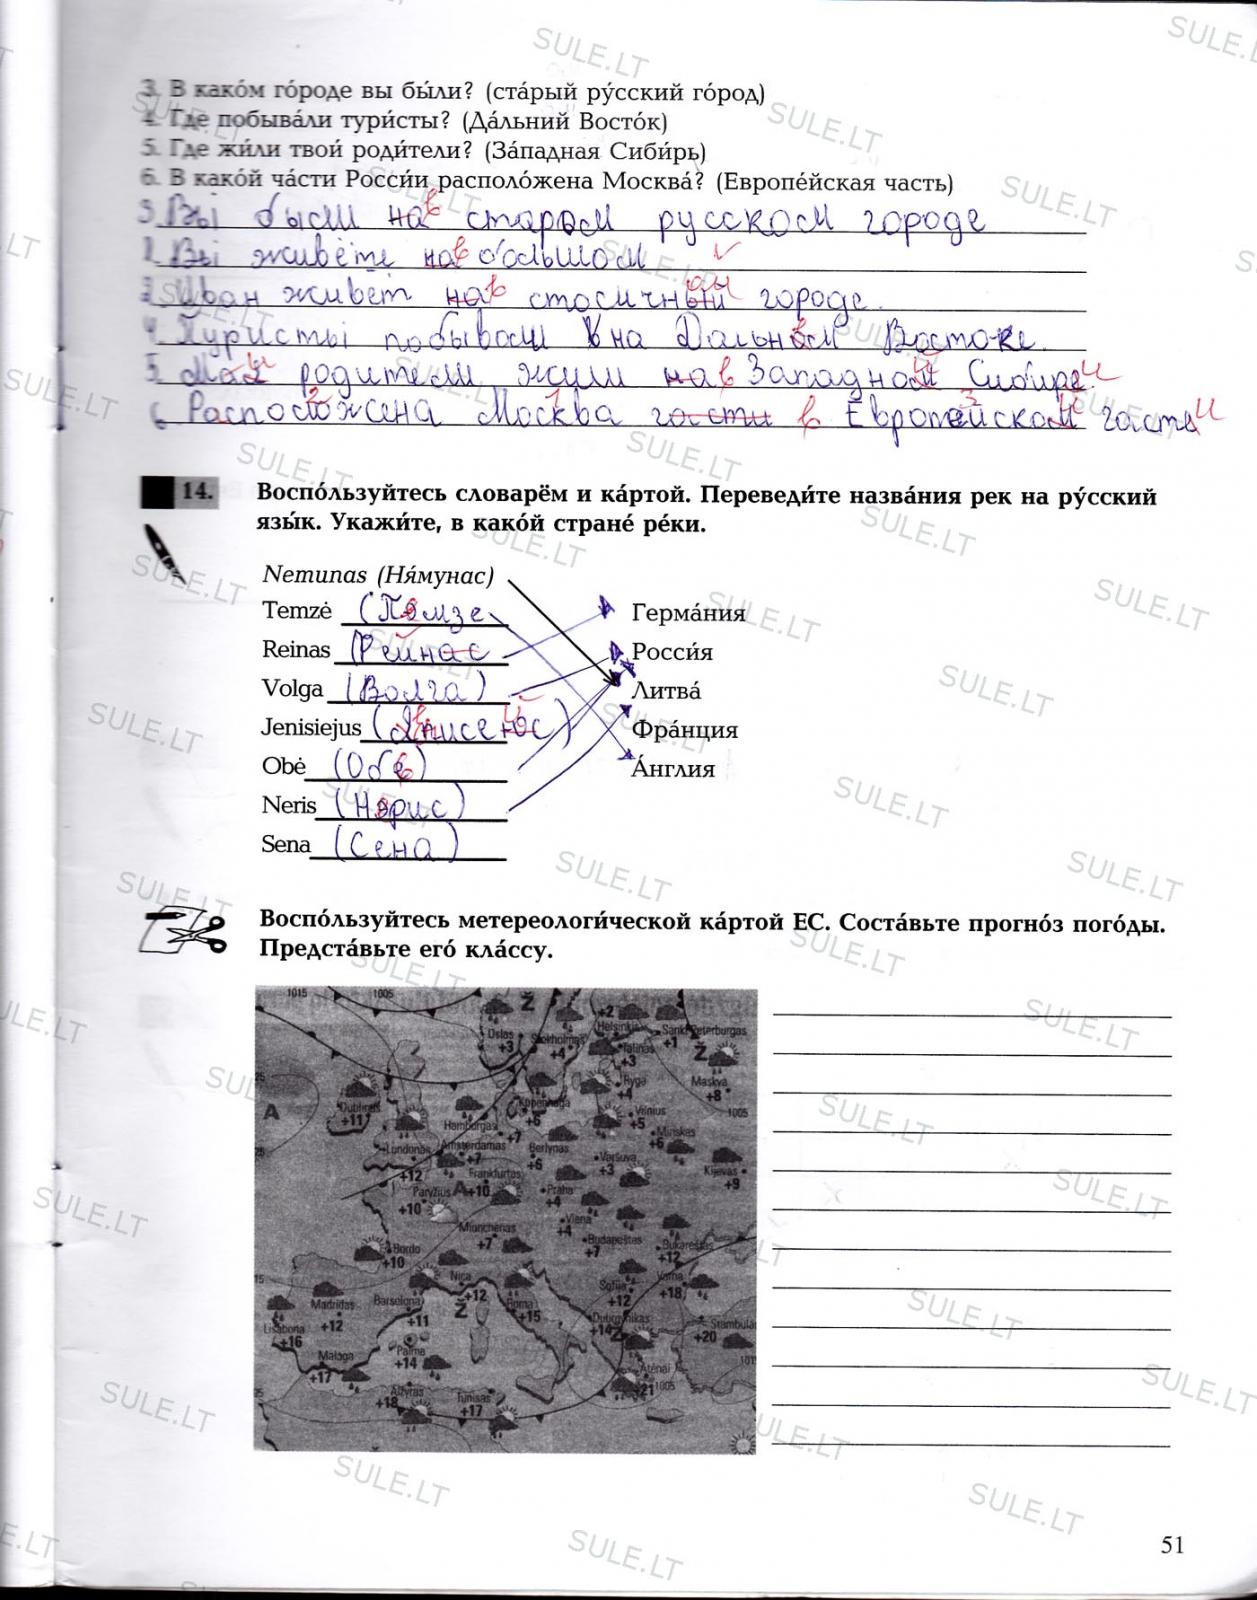 3. В како́м го́роде вы бы́ли? (ста́рый ру́сский го́род)
4. Где побыва́ли тури́сты? (Да́льний Восто́к)
5. Где жи́ли твои́ роди́тели? (За́падная Сиби́рь)
6. В како́й ча́сти Росси́и располо́жена Москва́? (Европе́йская часть)
3. Вы были на в старом русском городе
Вы живёте на в большом
Иван живёт на в столичный ом городе.
4. Туристы побывали на Дальнем Востоке.
5. родители жили на в Западной Сибири
6. Расположена Москва в Европейской
14. Воспо́льзуйтесь словарём и ка́ртой. Переведи́те назва́ния рек на ру́сский
язы́к. Укажи́те, в како́й стране́ ре́ки.
Nemunas (Ня́мунас)
Temzė Герма́ния
Reinas (Рейнас Росси́я
Volga (Волга) Литва́
Jenisiejus Фра́нция
Obė А́нглия
Neris (Нярис)
Sena (Сена)
Воспо́льзуйтесь метереологи́ческой ка́ртой ЕС. Соста́вьте прогно́з пого́ды.
Предста́вьте его́ кла́ссу.
1015 1005
Ž
Oslas +3
Stokholmas +4
+2 Helsinkis
Talinas +3
Sankt Peterburgas +1
Ž
Ryga +4
Maskva +8
A
Dublinas +11
Kopenhaga +6
Vilnius +5
1005
Hamburgas +7
Minskas +6
Londonas +12
Amsterdamas +7
Berlynas +6
Varšuva +3
Kijevas +9
Frankfurtas +10
Paryžius +10
A
Praha +4
Viena +4
Miunchenas +7
Budapeštas +7
Bukareštas +12
Bordo +10
Nica +12
Sofija +12
Varna +18
Madridas +12
Barselona +11
Ž
Roma +15
Dubrovnikas +14
Ž
Stambulas +20
Lisabona +16
Malaga +17
Palma +14
Atėnai +21
1005
Alžyras +18
Tunisas +17
51
SULE.LT